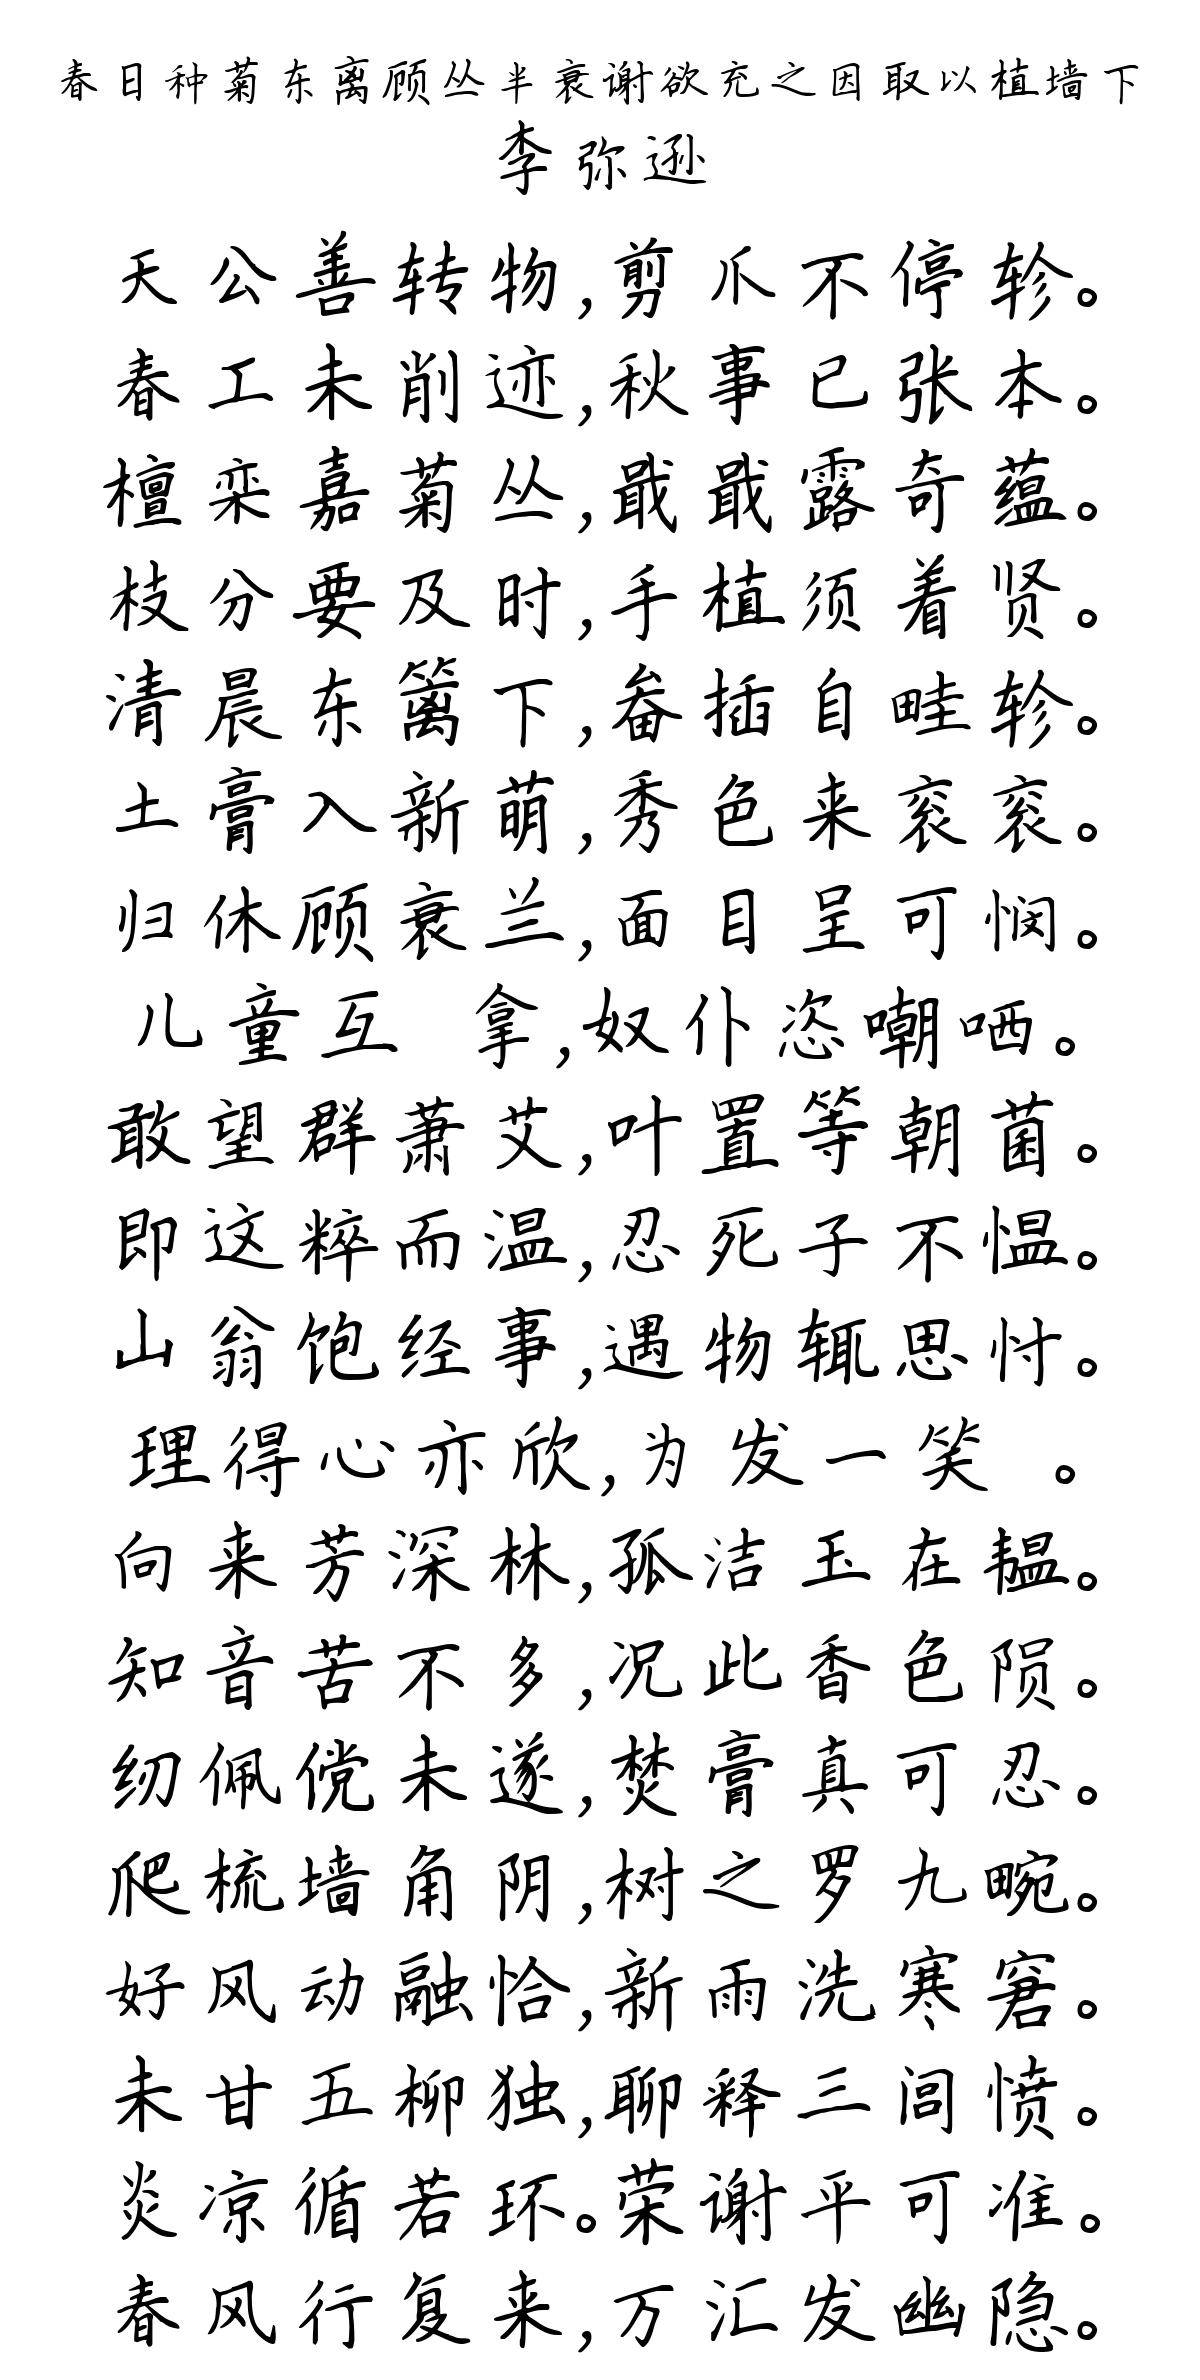 春日种菊东离顾丛半衰谢欲充之因取以植墙下
李弥逊
天公善转物,剪爪不停轸。
春工未削迹,秋事已张本。
檀栾嘉菊丛,戢戢露奇蕴。
枝分要及时,手植须着贤。
清晨东篱下,畚插自畦轸。
土膏入新萌,秀色来衮衮。
归休顾衰兰,面目呈可悯。
儿童互 拿,奴仆恣嘲哂。
敢望群萧艾,叶置等朝菌。
即这粹而温,忍死子不愠。
山翁饱经事,遇物辄思忖。
理得心亦欣,为发一笑 。
向来芳深林,孤洁玉在韫。
知音苦不多,况此香色陨。
纫佩傥未遂,焚膏真可忍。
爬梳墙角阴,树之罗九畹。
好风动融恰,新雨洗寒窘。
未甘五柳独,聊释三闾愤。
炎凉循若环。荣谢平可准。
春风行复来,万汇发幽隐。